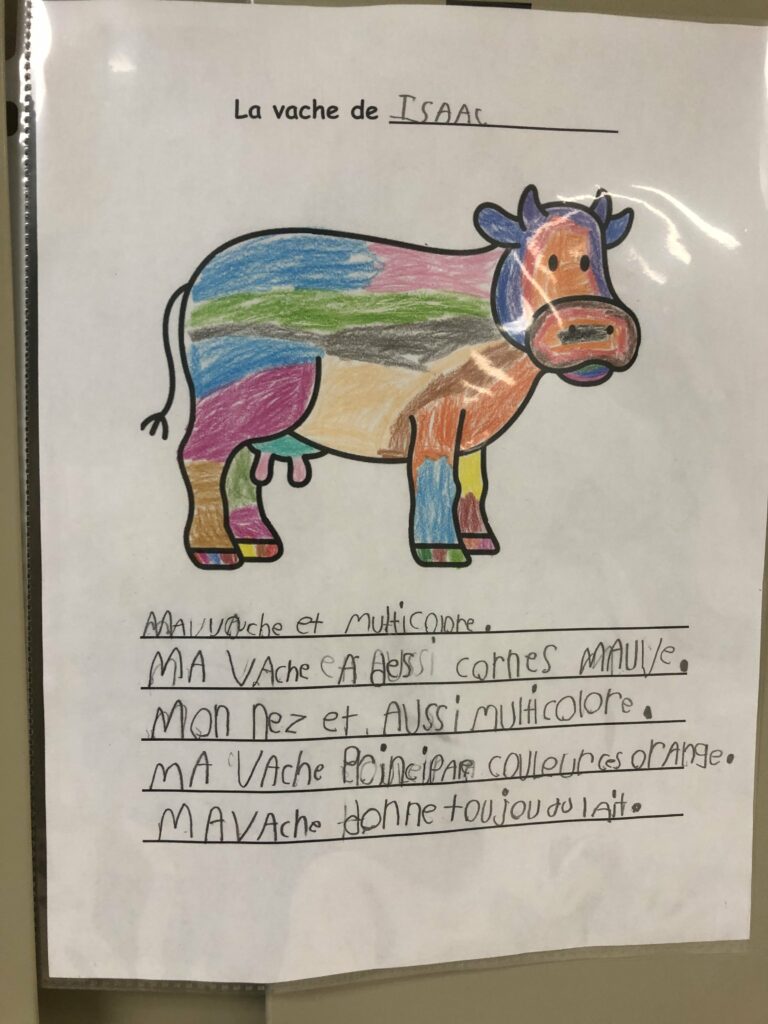 La vache de ISAAC
vache et multicolore.
MA VAche A cornes MAUVe.
Mon nez et AUSSi multicolore.
MA VAche couleur orAnge.
MA VAche donne toujou du lAit.